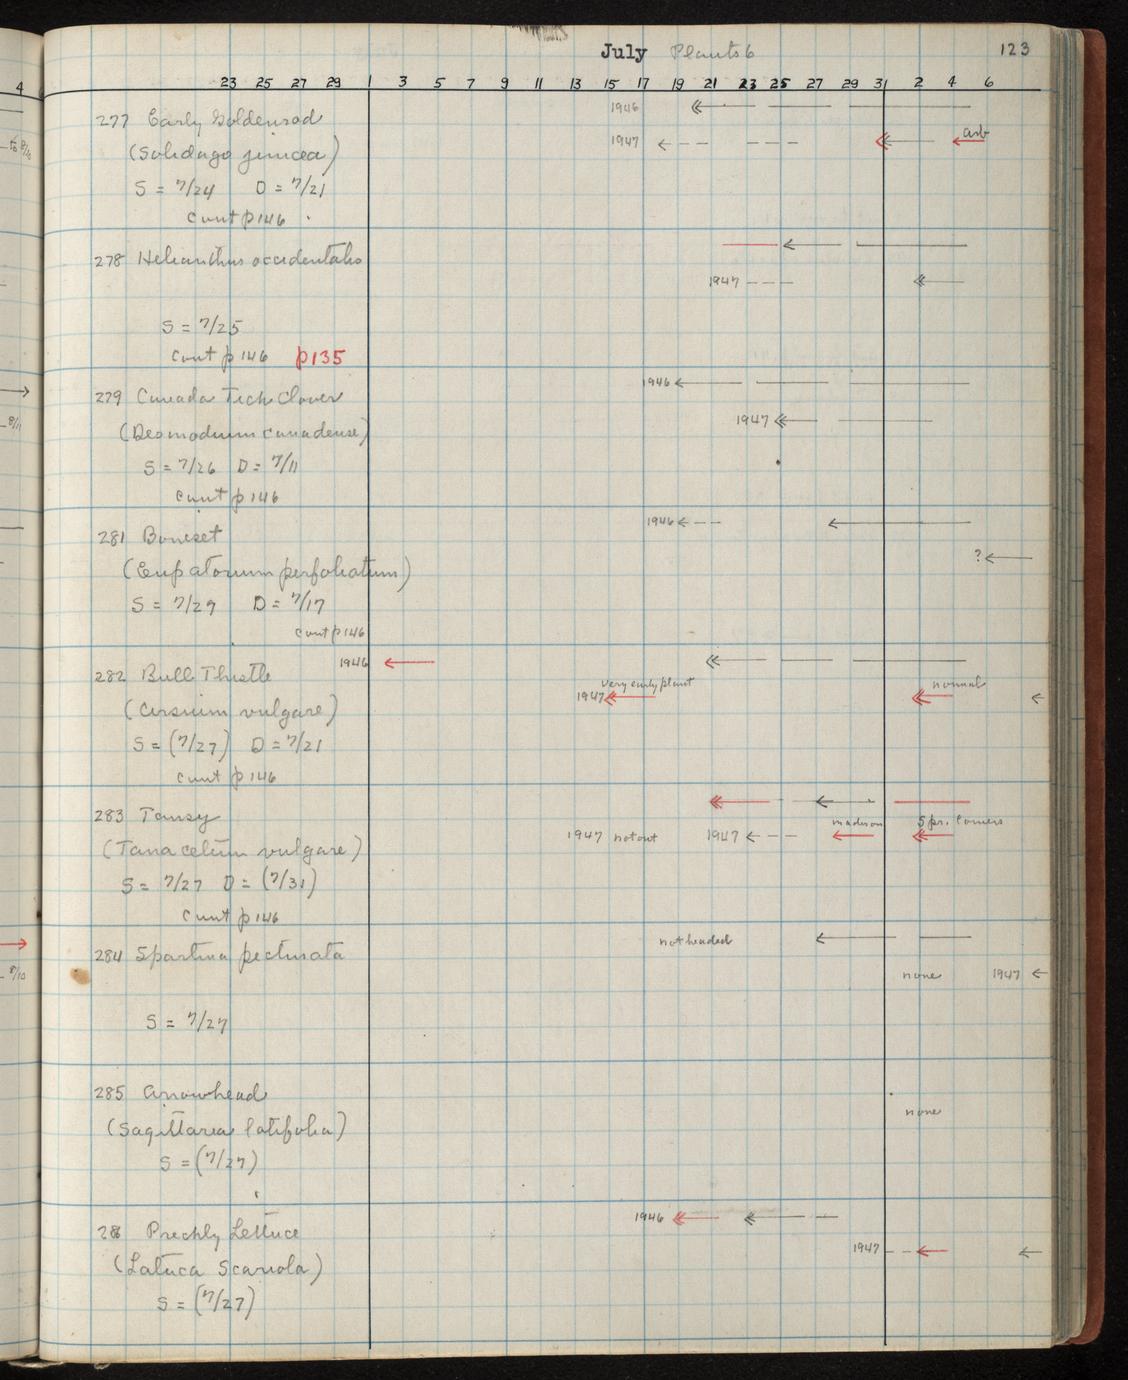 July Plants 6 123
4 23 25 27 29 1 3 5 7 9 11 13 15 17 19 21 23 25 27 29 31 2 4 6
1946
277 Early Goldenrod
1947 arb
(Solidago juncea)
S = 7/24 D = 7/21
Cont p 146
278 Helianthus occidentalis
1947
S = 7/25
Cont p 146 p 135
1946
279 Canada Tick Clover
1947
8/11
(Desmodium canadense)
S = 7/26 D = 7/11
Cont p 146
1946
281 Boneset
?
(Eupatorium perfoliatum)
S = 7/29 D = 7/17
cont p 146
1946
282 Bull Thistle
very early plant normal
1947
(Cirsium vulgare)
S = (7/27) D = 7/21
Cont p 146
283 Tansy
madison Spr. Corners
1947 not out 1947
(Tanacetum vulgare)
S = 7/27 D = (7/31)
Cont p 146
not headed
284 Spartina pectinata
8/10
none 1947
S = 7/27
285 Arrowhead
none
(Sagittaria latifolia)
S = (7/27)
1946
286 Prickly Lettuce
1947
(Latuca Scariola)
S = (7/27)